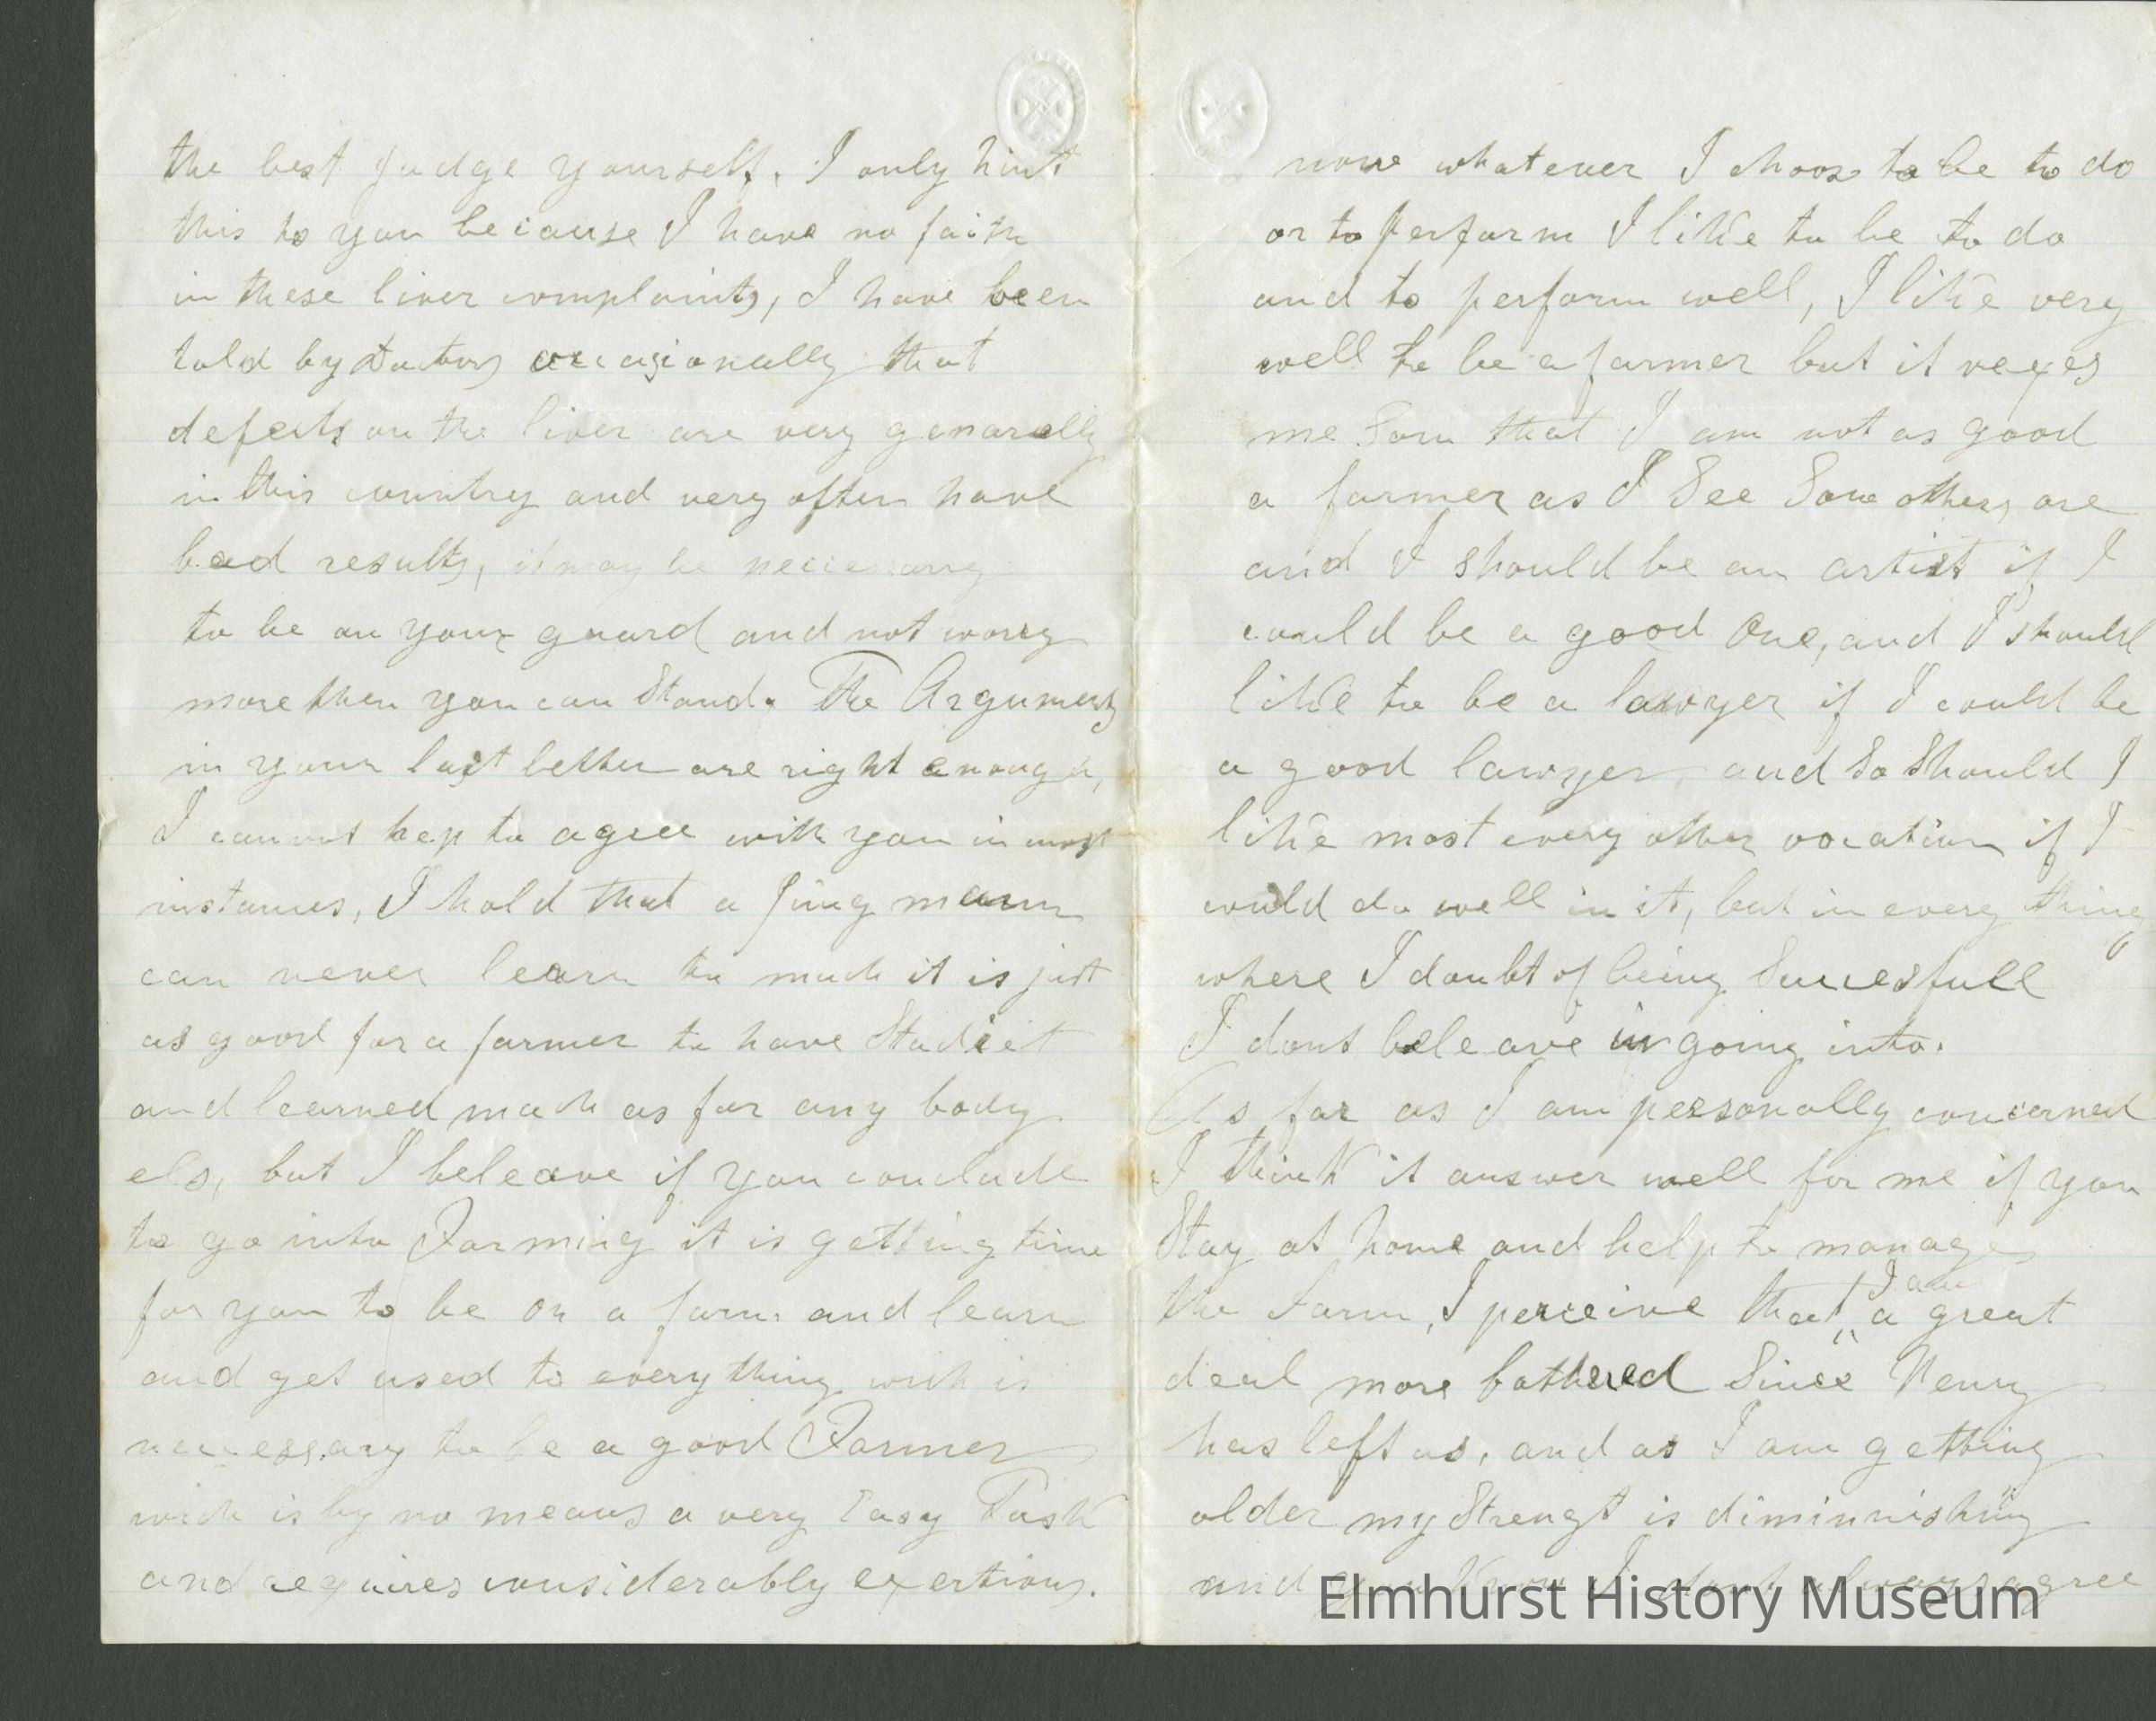 the best judge yourself. I only hint
this to you because I have no faith
in these liver complaints, I have been
told by Doctors occasionally that
defects on the liver are very genarally
in this country and very often have
bad results, it may be neccessary
to be on your guard and not worry
more then you can Stand. The Arguments
in your last letter are right enough,
I cannot hep to agree with you in most
instances, I hold that a jung mann
can never learn to much it is just
as good for a farmer to have Studiet
and learned much as for any body
els, but I beleave if you conclude
to go into Farming it is getting time
for you to be on a farm and learn
and get used to every thing wich is
neccessary to be a good Farmer
wich is by no means a very Easy Task
and requires considerably exertions.
now whatever I choose to be to do
or to perform I like to be to do
and to perform well, I like very
well to be a farmer but it vexes
me Som that I am not as good
a farmer as I See Some others are
and I should be an artist if I
could be a good One, and I should
like to be a lawyer if I could be
a good lawyer and So Should I
like most every other vocation if I
could do well in it, but in every thing
where I doubt of being Succesfull
I dont beleave in going into.
As far as I am personally concerned
I think it answer well for me if you
Stay at home and help to manage
the Farm, I perceive that I am a great
deal more bothered Since Henry
has left us, and as I am getting
older my Strengt is diminnishing
and you Know I dont always agree
Elmhurst History Museum